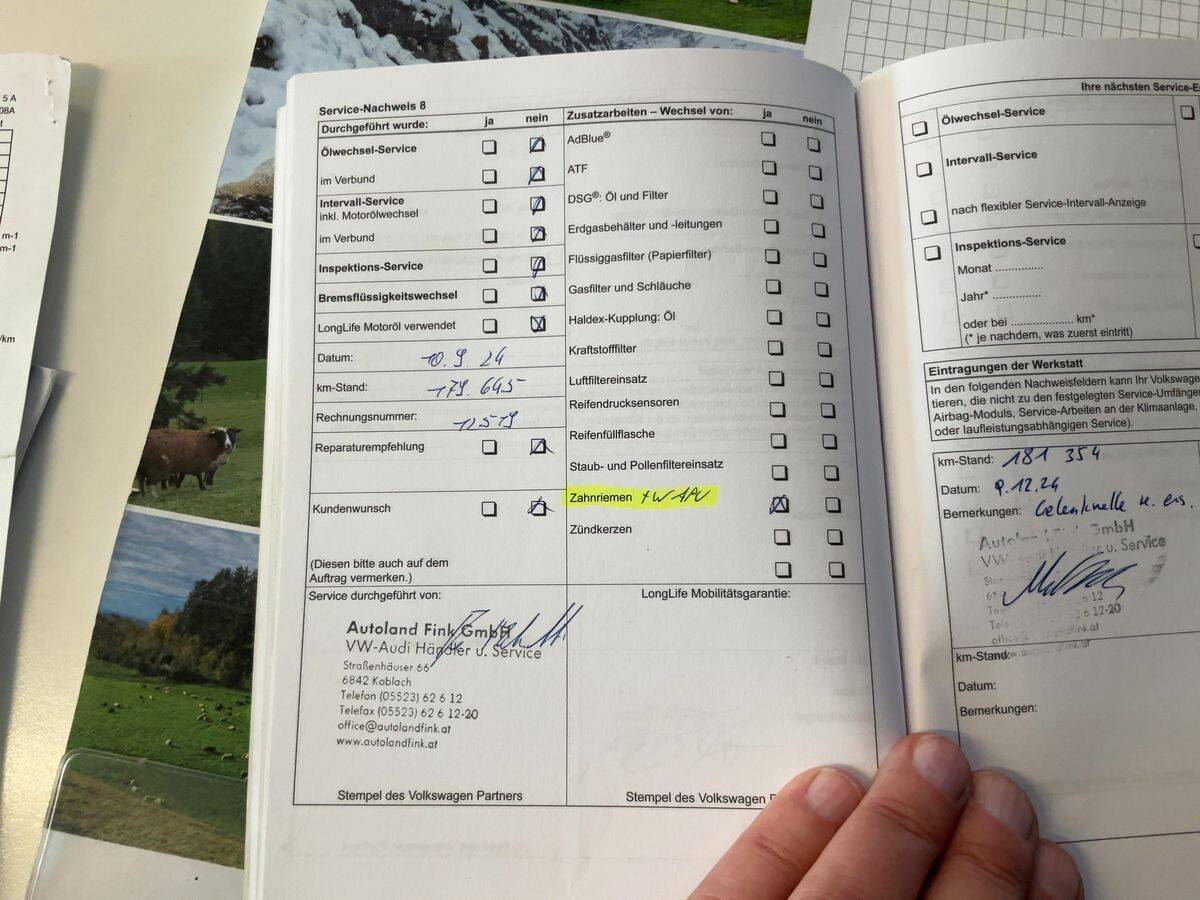 5 A
08A
m-1
m-1
/km
Service-Nachweis 8
Durchgeführt wurde: ja nein
Ölwechsel-Service
im Verbund
Intervall-Service
inkl. Motorölwechsel
im Verbund
Inspektions-Service
Bremsflüssigkeitswechsel
LongLife Motoröl verwendet
Datum: 10.9.24
km-Stand: 179.645
Rechnungsnummer:
Reparaturempfehlung
Kundenwunsch
(Diesen bitte auch auf dem
Auftrag vermerken.)
Service durchgeführt von:
Autoland Fink GmbH
VW-Audi Händler u. Service
Straßenhäuser 66
6842 Koblach
Telefon (05523) 62 6 12
Telefax (05523) 62 6 12-20
office@autolandfink.at
www.autolandfink.at
Stempel des Volkswagen Partners
Zusatzarbeiten – Wechsel von: ja nein
AdBlue®
ATF
DSG®: Öl und Filter
Erdgasbehälter und -leitungen
Flüssiggasfilter (Papierfilter)
Gasfilter und Schläuche
Haldex-Kupplung: Öl
Kraftstofffilter
Luftfiltereinsatz
Reifendrucksensoren
Reifenfüllflasche
Staub- und Pollenfiltereinsatz
Zahnriemen
Zündkerzen
LongLife Mobilitätsgarantie:
Stempel des Volkswagen P
Ihre nächsten Service-E
Ölwechsel-Service
Intervall-Service
nach flexibler Service-Intervall-Anzeige
Inspektions-Service
Monat ...............
Jahr* ...............
oder bei .................... km*
(* je nachdem, was zuerst eintritt)
Eintragungen der Werkstatt
In den folgenden Nachweisfeldern kann Ihr Volkswagen
tieren, die nicht zu den festgelegten Service-Umfängen
Airbag-Moduls, Service-Arbeiten an der Klimaanlage,
oder laufleistungsabhängigen Service).
km-Stand: 181 354
Datum: 9.12.24
Bemerkungen: Gelenkwelle
Autoland GmbH
VW- u. Service
6 12
6 12-20
km-Stand:
Datum:
Bemerkungen: